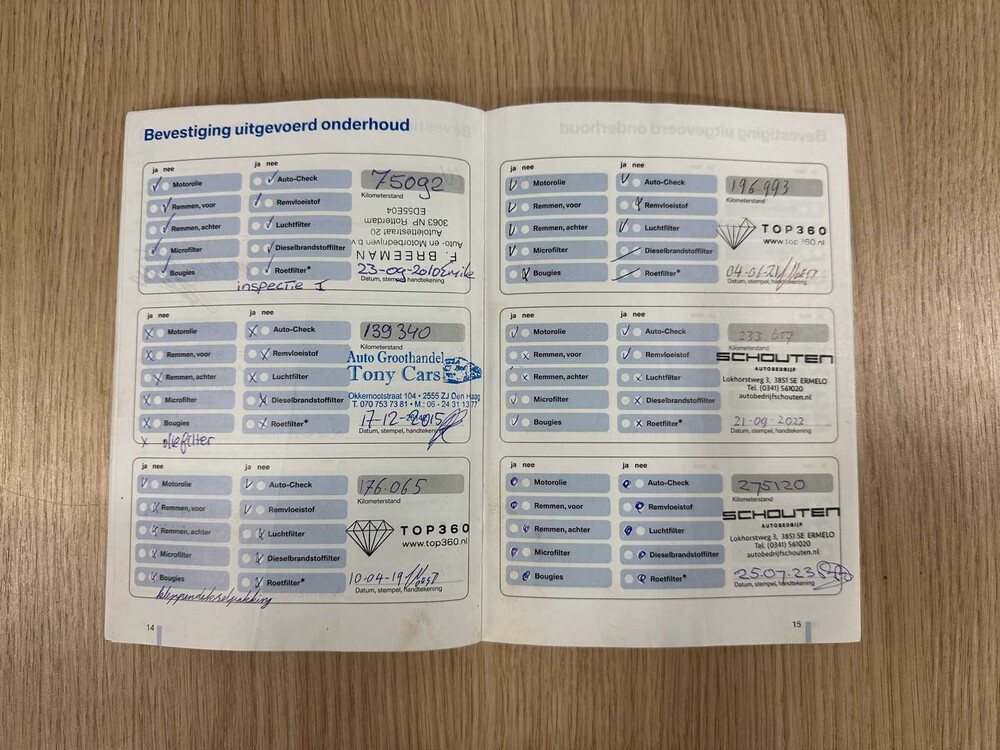 Bevestiging uitgevoerd onderhoud
ja nee
ja nee
Motorolie
Auto-Check
75092
Kilometerstand
Remmen, voor
Remvloeistof
Remmen, achter
Luchtfilter
Microfilter
Dieselbrandstoffilter
Bougies
Roetfilter*
F. BREEMAN
Auto- en Motorbedrijven b.v.
Autolettestraat 20
3063 NP Rotterdam
ED55E04
23-09-2010
Datum, stempel, handtekening
inspectie I
ja nee
ja nee
Motorolie
Auto-Check
139340
Kilometerstand
Remmen, voor
Remvloeistof
Remmen, achter
Luchtfilter
Microfilter
Dieselbrandstoffilter
Bougies
Roetfilter*
Auto Groothandel
Tony Cars
Okkernootstraat 104 • 2555 ZJ Den Haag
T. 070 753 73 81 • M.: 06 - 24 31 13 77
17-12-2015
Datum, stempel, handtekening
x oliefilter
ja nee
ja nee
Motorolie
Auto-Check
176.065
Kilometerstand
Remmen, voor
Remvloeistof
Remmen, achter
Luchtfilter
Microfilter
Dieselbrandstoffilter
Bougies
Roetfilter*
TOP360
www.top360.nl
10-04-19
Datum, stempel, handtekening
kleppendekselpakking
14
ja nee
ja nee
Motorolie
Auto-Check
196-993
Kilometerstand
Remmen, voor
Remvloeistof
Remmen, achter
Luchtfilter
Microfilter
Dieselbrandstoffilter
Bougies
Roetfilter*
TOP360
www.top360.nl
04-06-21
Datum, stempel, handtekening
ja nee
ja nee
Motorolie
Auto-Check
233 657
Kilometerstand
Remmen, voor
Remvloeistof
Remmen, achter
Luchtfilter
Microfilter
Dieselbrandstoffilter
Bougies
Roetfilter*
SCHOUTEN
AUTOBEDRIJF
Lokhorstweg 3, 3851 SE ERMELO
Tel. (0341) 561020
autobedrijfschouten.nl
21-09-2022
Datum, stempel, handtekening
ja nee
ja nee
Motorolie
Auto-Check
275120
Kilometerstand
Remmen, voor
Remvloeistof
Remmen, achter
Luchtfilter
Microfilter
Dieselbrandstoffilter
Bougies
Roetfilter*
SCHOUTEN
AUTOBEDRIJF
Lokhorstweg 3, 3851 SE ERMELO
Tel. (0341) 561020
autobedrijfschouten.nl
25-07-23
Datum, stempel, handtekening
15